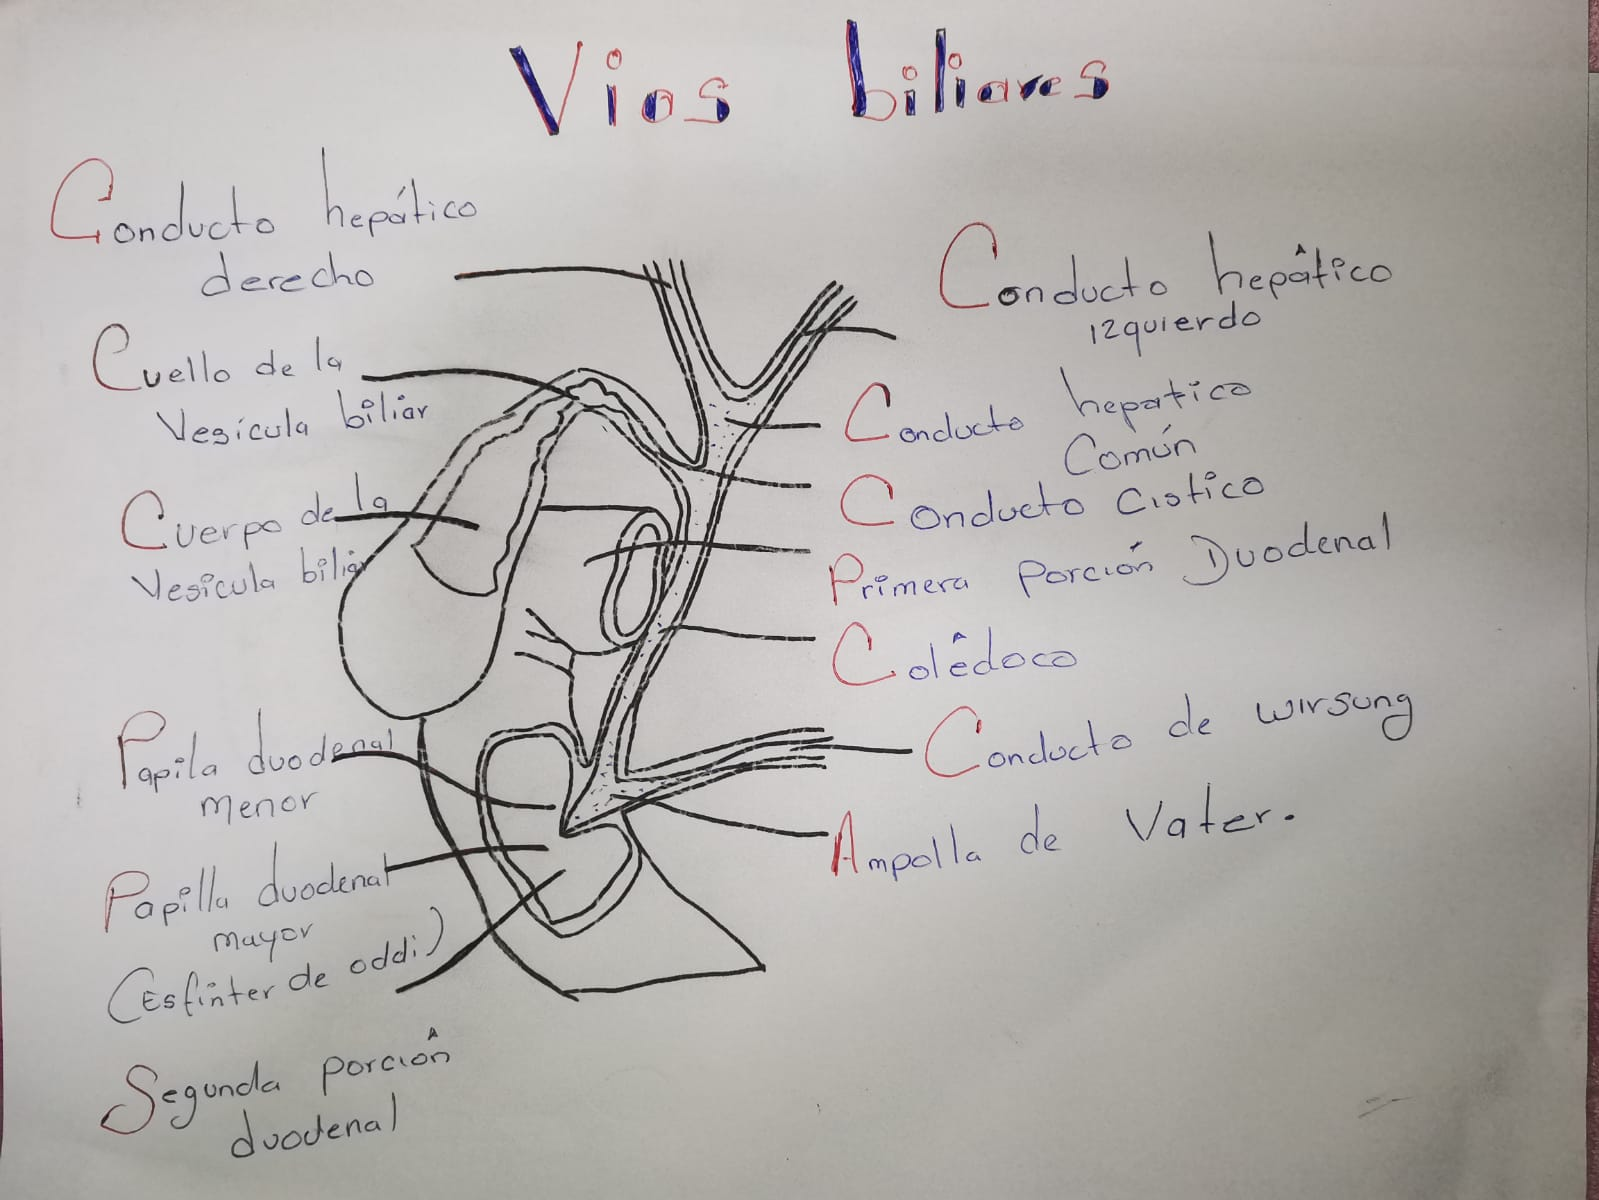 Vias biliares
Conducto hepático
derecho
Cuello de la
Vesícula biliar
Cuerpo de la
Vesícula biliar
Papila duodenal
menor
Papilla duodenal
mayor
(Esfinter de oddi)
Segunda porciôn
duodenal
Conducto hepâtico
izquierdo
Conducto hepatico
Común
Conducto cistico
Primera porción Duodenal
Colêdoco
Conducto de wirsung
Ampolla de Vater.